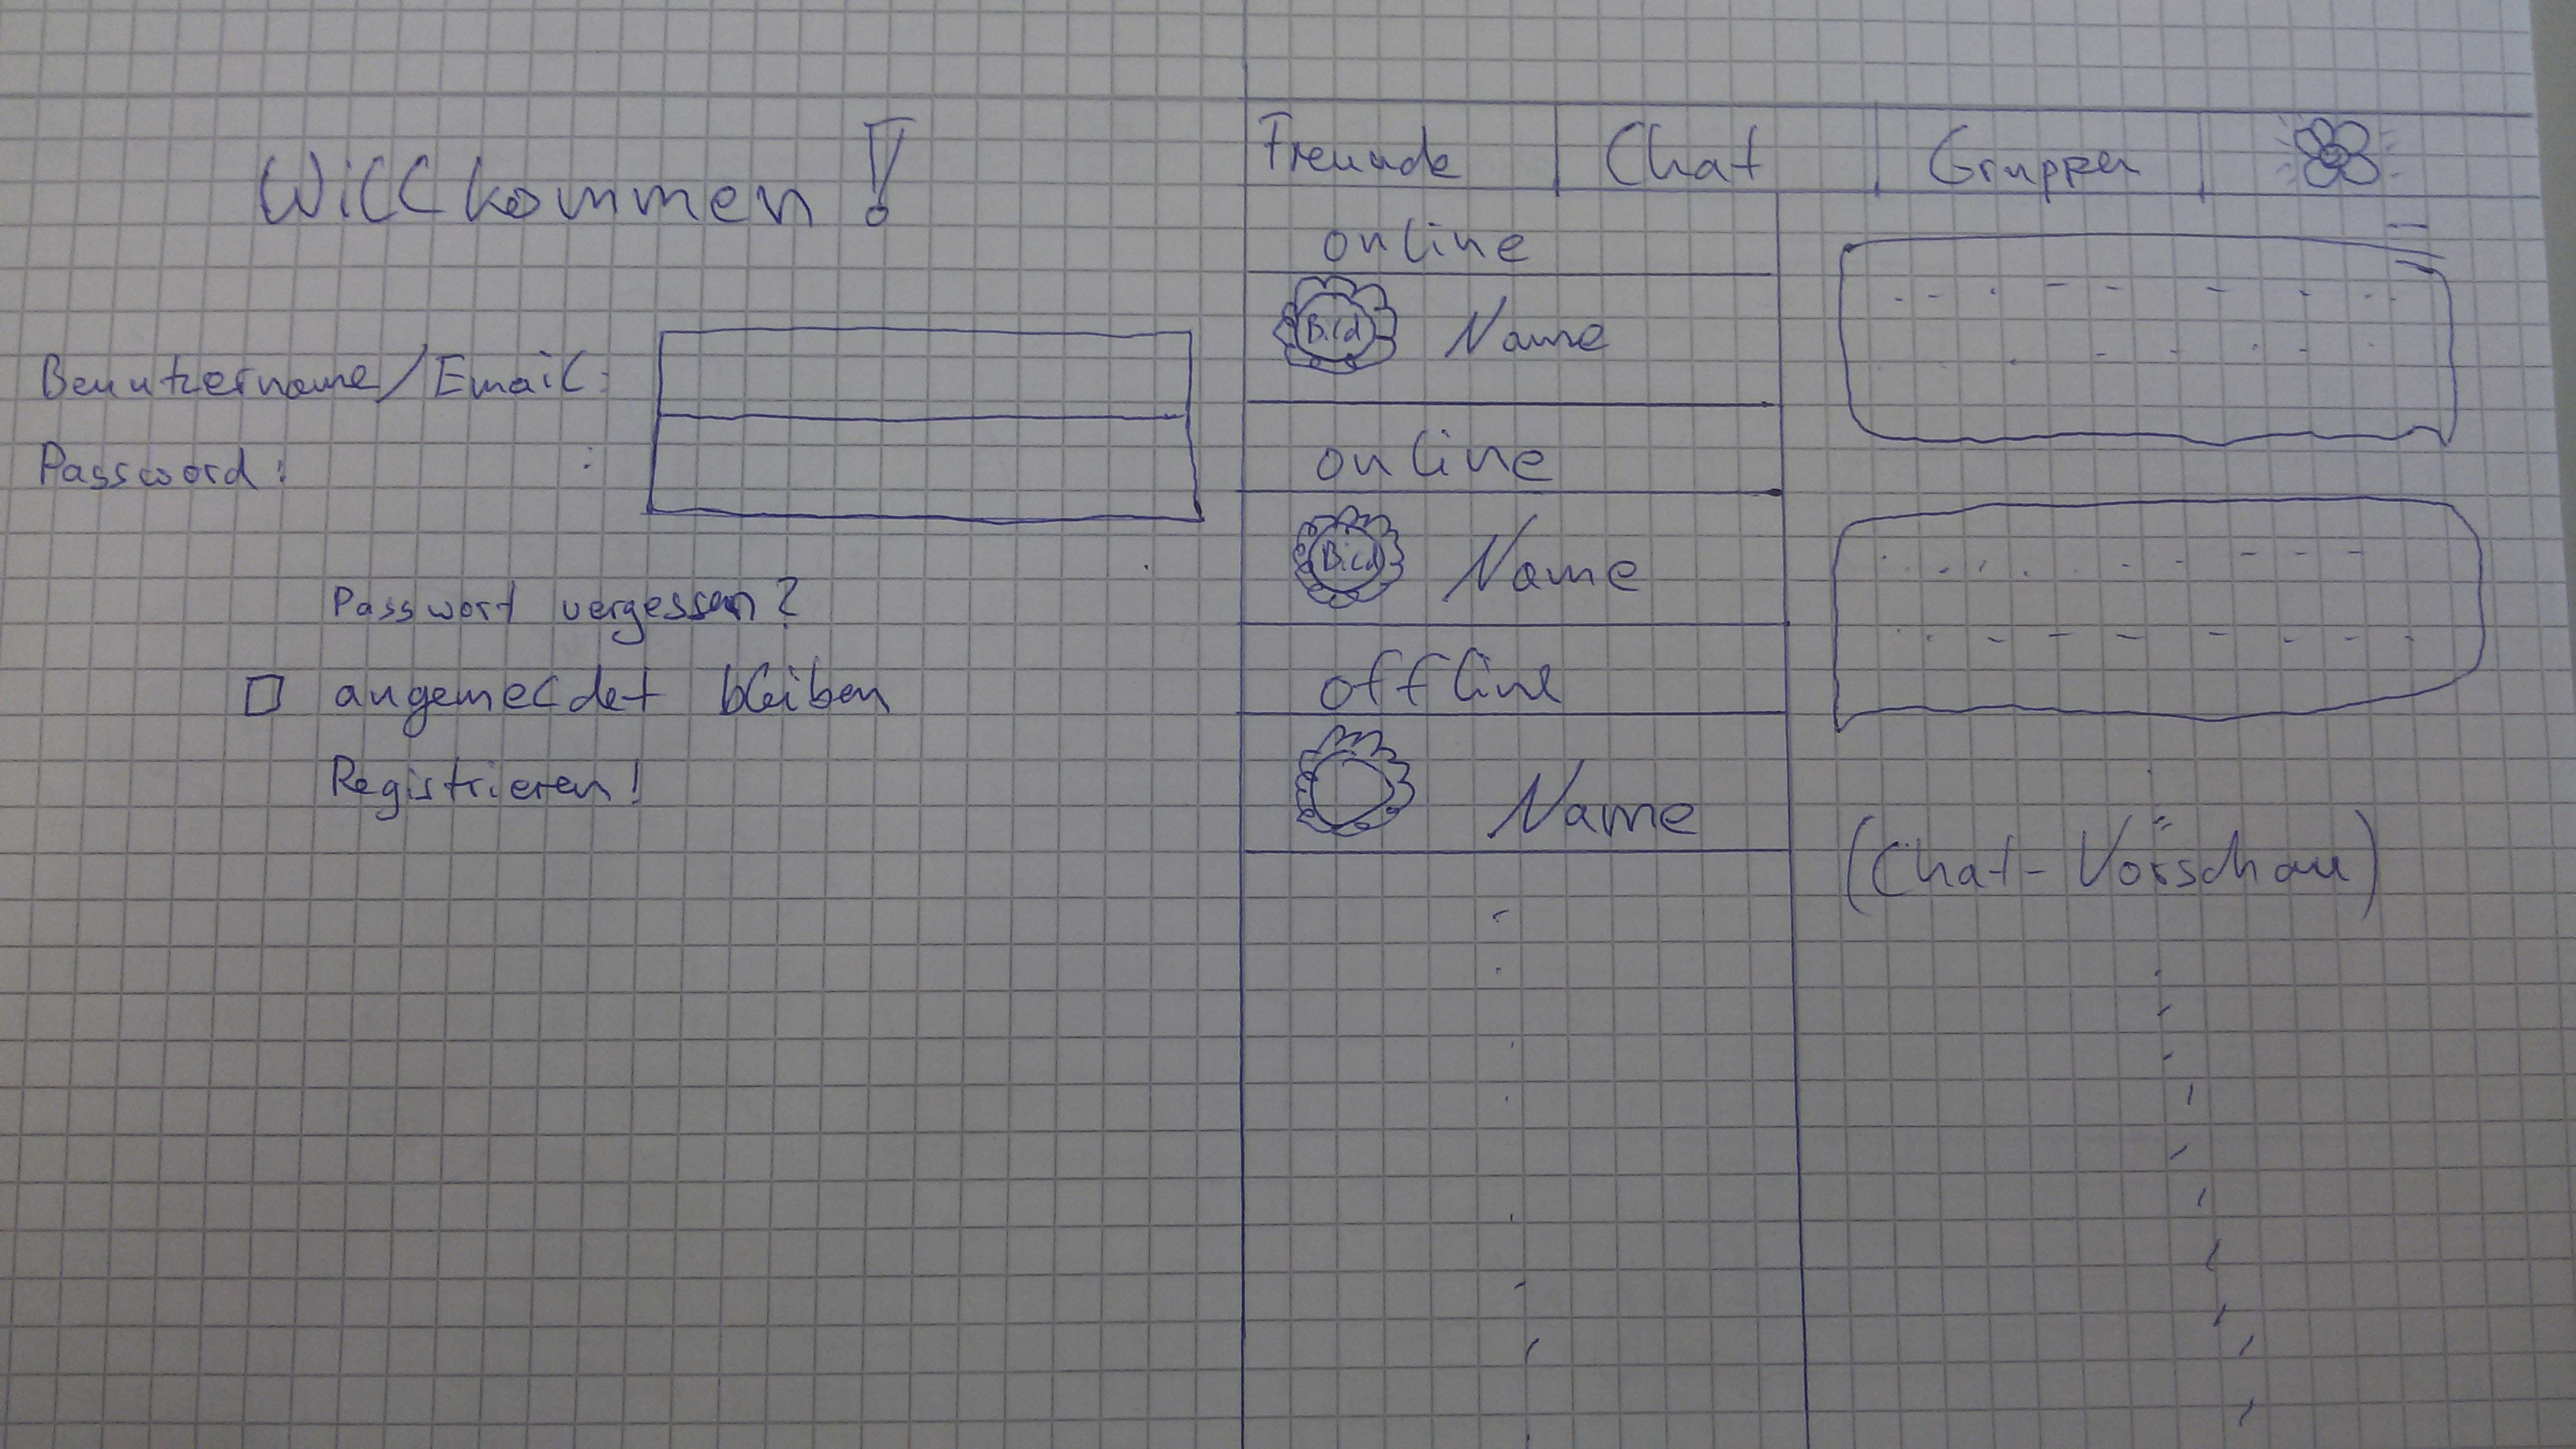 Willkommen!
Benutzername/Email:
Password: :
Passwort vergessen?
angemeldet bleiben
Registrieren!
Freunde | Chat | Gruppen
online
Bild Name
online
Bild Name
offline
Name
(Chat-Vorschau)